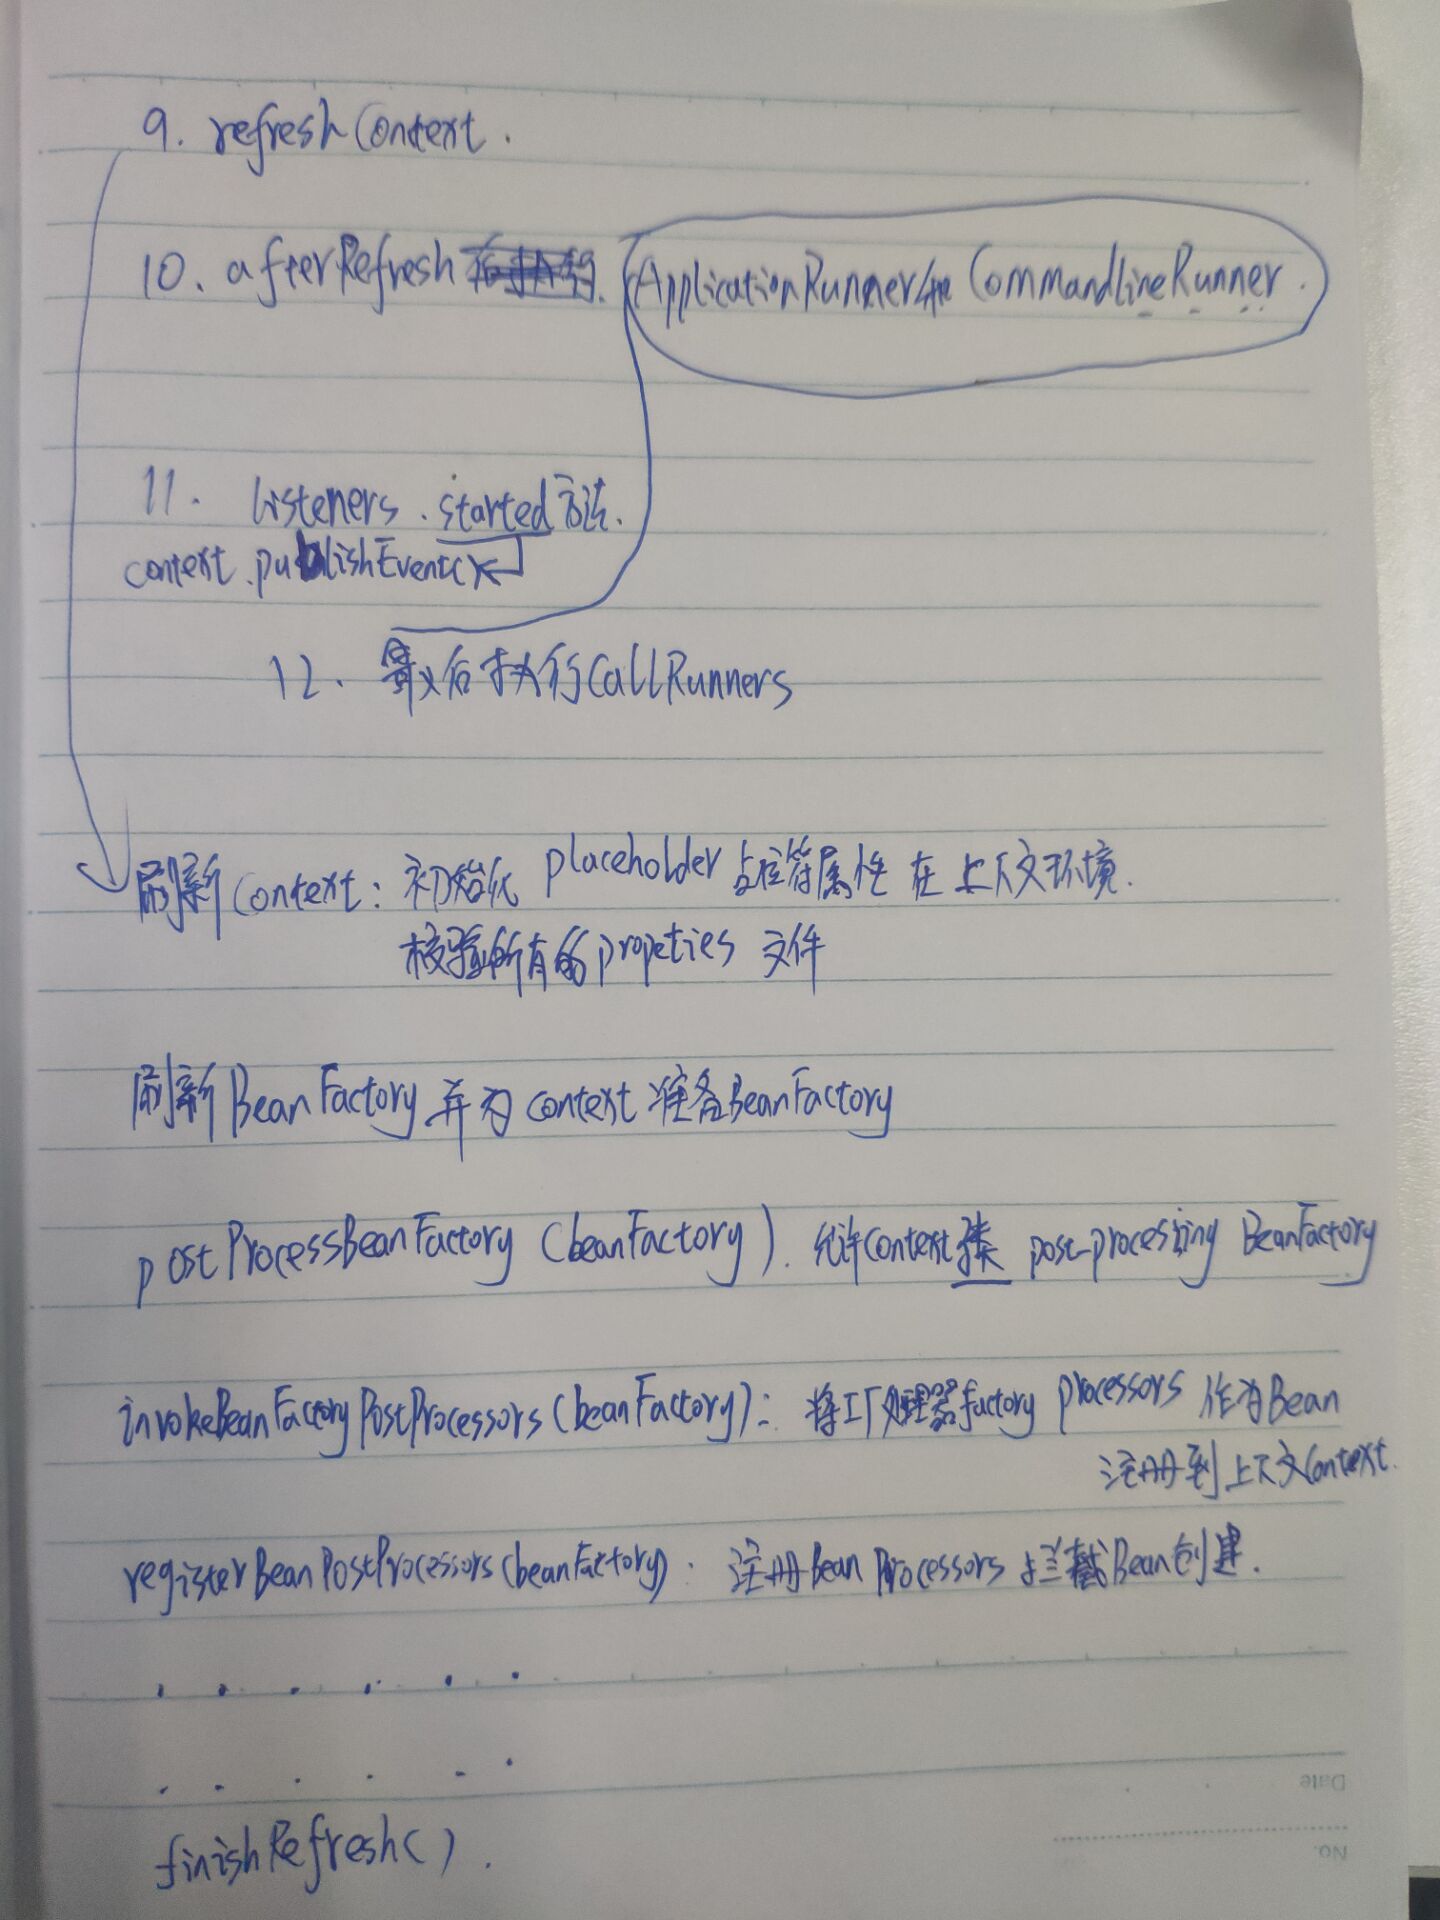 9. refreshContext.
10. afterRefresh ApplicationRunner/和 CommandLineRunner.
11. listeners.started方法.
context.publishEvent()
12. 最后执行callRunners
刷新Context: 初始化 placeholder占位符属性在上下文环境.
校验所有的propeties 文件
刷新BeanFactory并为context准备BeanFactory
postProcessBeanFactory (beanFactory). 允许context post-processing BeanFactory
invokeBeanFactoryPostProcessors(beanFactory): 将工厂处理器factory processors 作为Bean
注册到上下文Context.
registerBeanPostProcessors(beanFactory): 注册Bean Processors 拦截Bean创建.
. . . . . .
. . . . . .
finishRefresh().
Date
No.